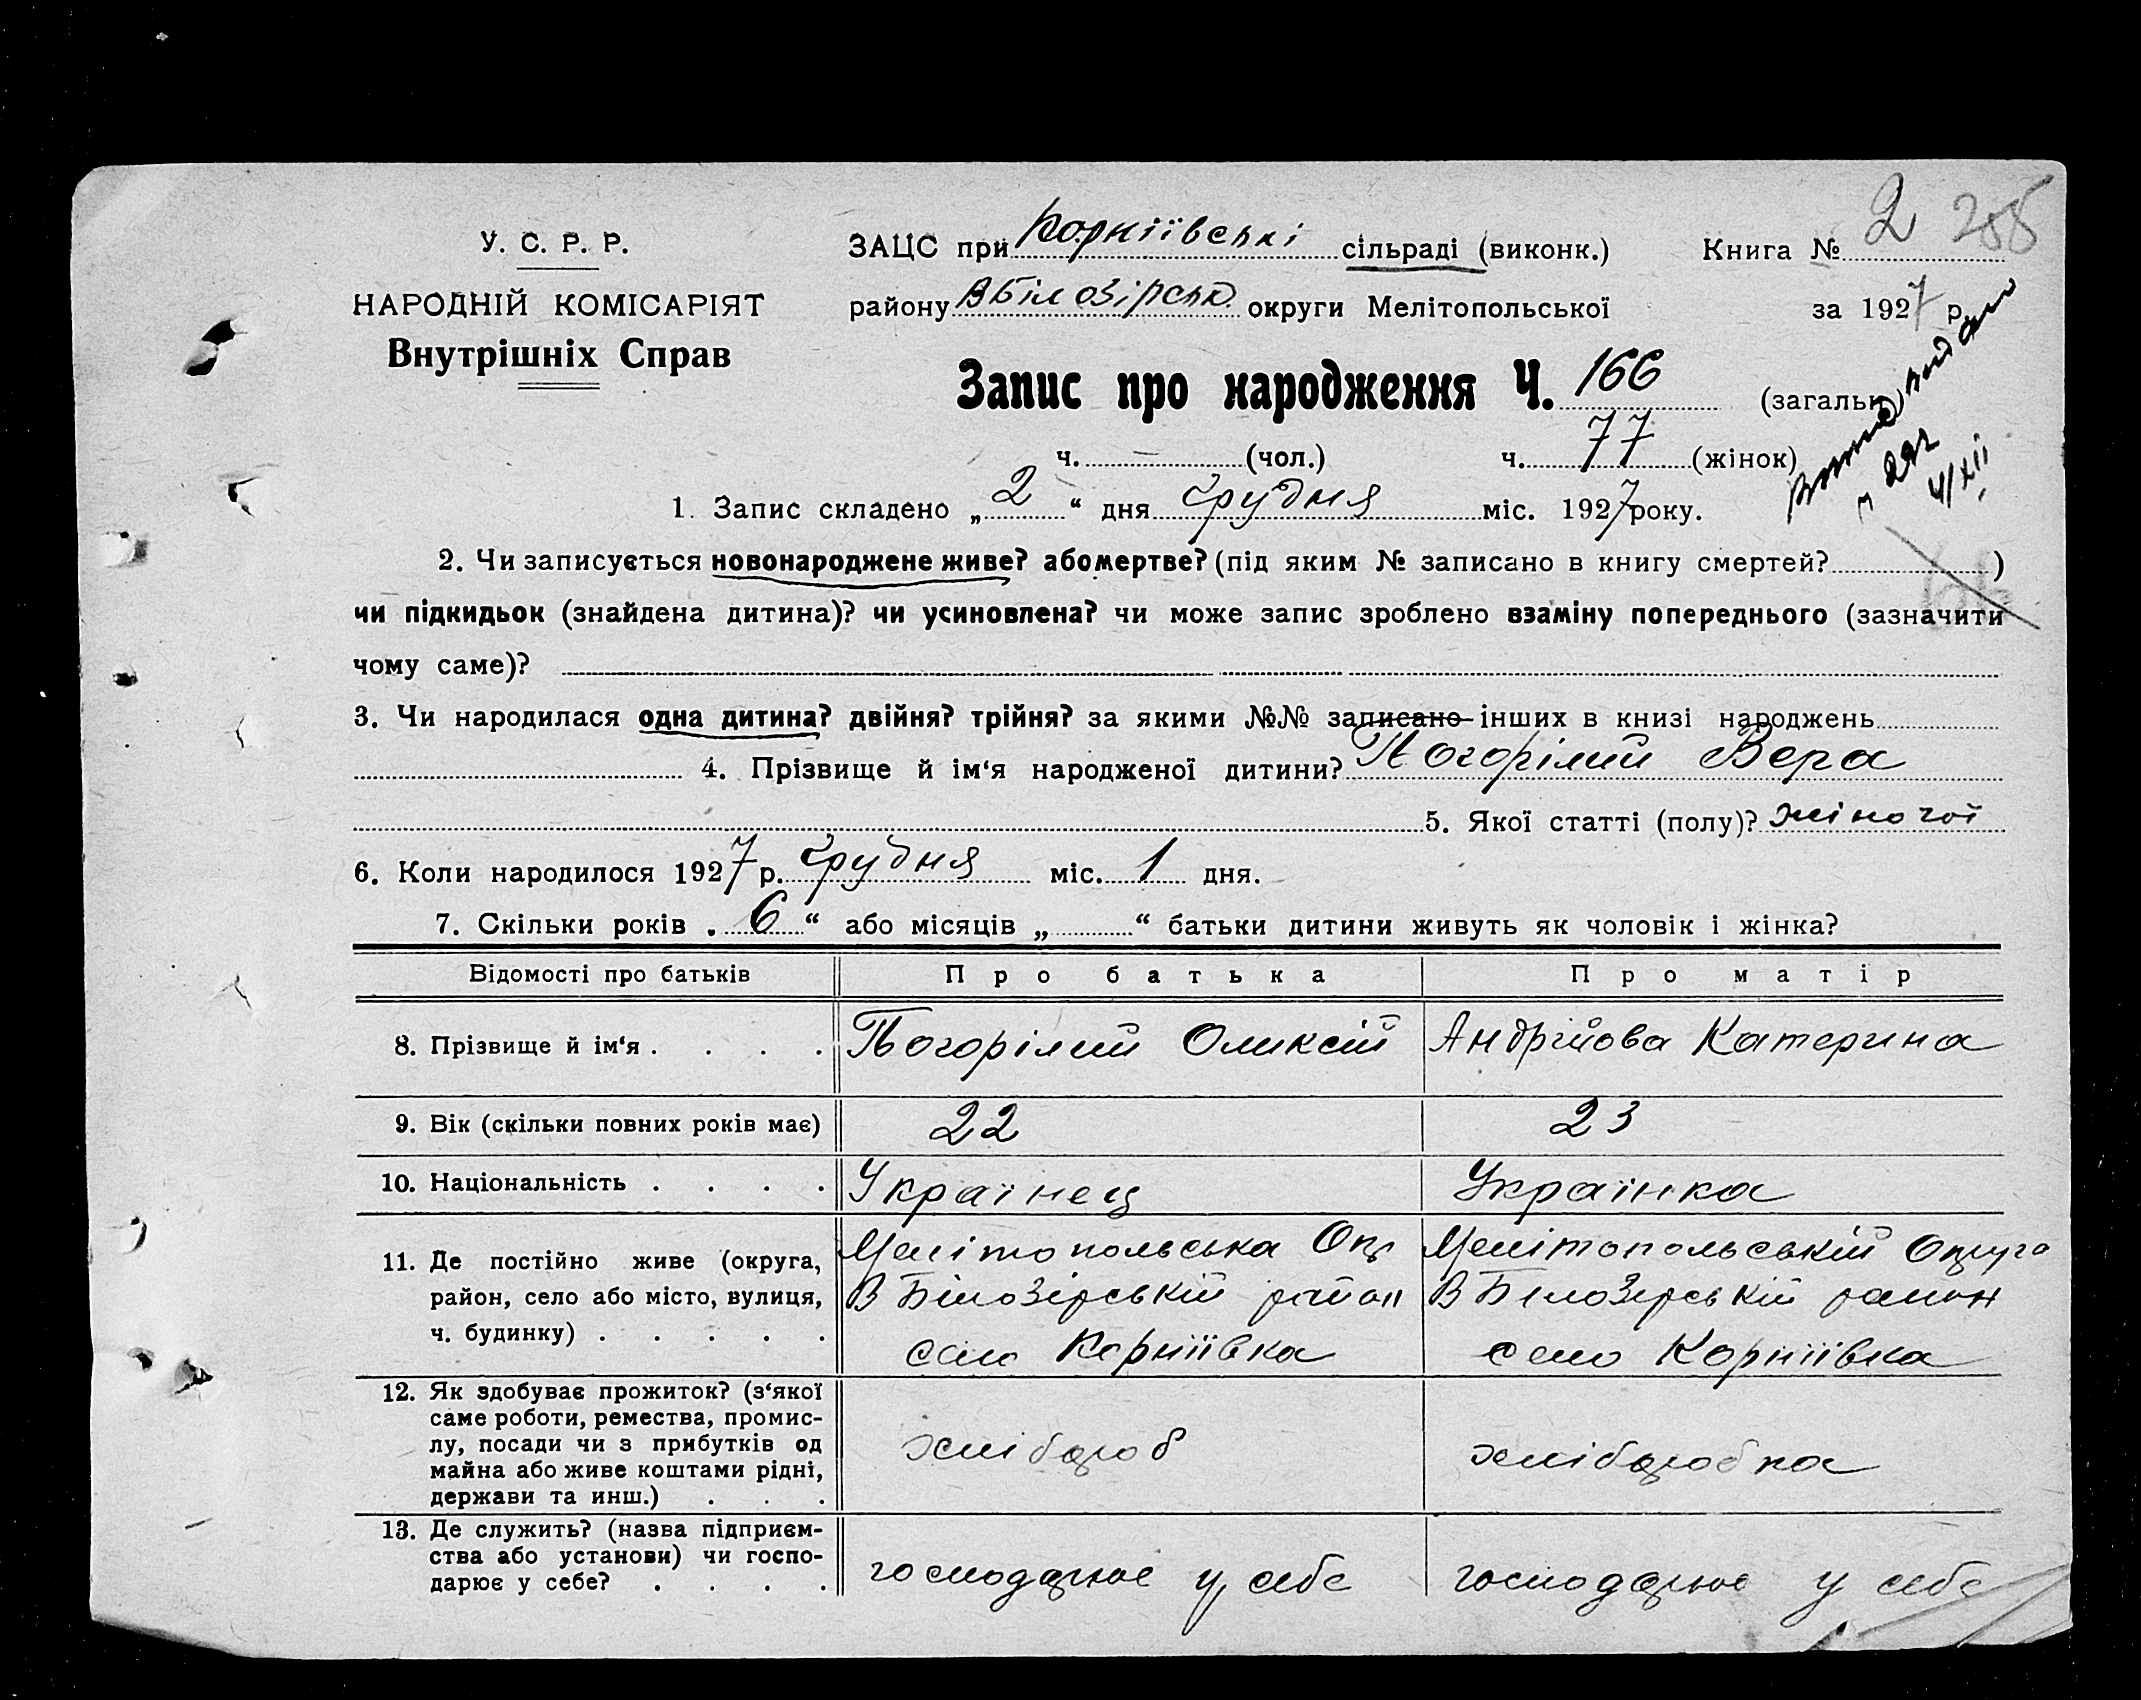 2 288
У. С. Р. Р.
НАРОДНІЙ КОМІСАРІЯТ
Внутрішніх Справ
ЗАЦС при Корніївські сільраді (виконк.) Книга №
району ВБілозірськ. округи Мелітопольської за 1927 р.
Запис про народження Ч. 166 (загальн.)
ч. — (чол.) ч. 77 (жінок)
4/XII
1. Запис складено „2“ дня Грудня міс. 1927 року.
2. Чи записується новонароджене живе? або мертве? (під яким № записано в книгу смертей? )
чи підкидьок (знайдена дитина)? чи усиновлена? чи може запис зроблено взаміну попереднього (зазначити
чому саме)?
3. Чи народилася одна дитина? двійня? трійня? за якими №№ записано інших в книзі народжень
4. Прізвище й ім‘я народженої дитини? Погорілий Вера
5. Якої статті (полу)? жіночої
6. Коли народилося 1927 р. Грудня міс. 1 дня.
7. Скільки років „6“ або місяців „ “ батьки дитини живуть як чоловік і жінка?
Відомості про батьків Про батька Про матір
8. Прізвище й ім‘я . . . . Погорілий Оликсій Андрійова Катерина
9. Вік (скільки повних років має) 22 23
10. Національність . . . . Українец Українка
11. Де постійно живе (округа, Мелітопольська Окр Мелітопольській Округа
район, село або місто, вулиця, В Білозірській район В Білозерській район
ч. будинку) . . . . . село Корніївка село Корніївка
12. Як здобуває прожиток? (з‘якої
саме роботи, ремества, промис-
лу, посади чи з прибутків од хлібороб хліборобка
майна або живе коштами рідні,
держави та инш.) . . .
13. Де служить? (назва підприєм-
ства або установи) чи госпо- господарює у себе господарює у себе
дарює у себе? . . . .